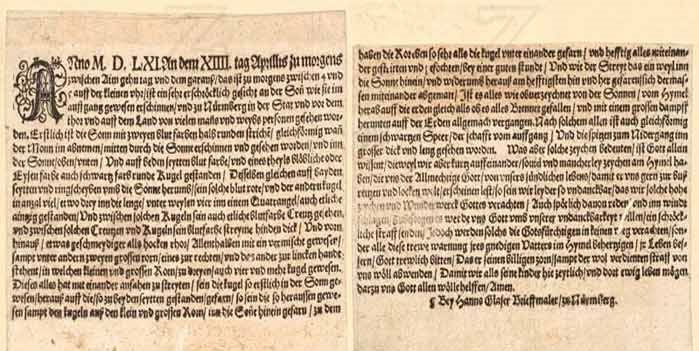 ANno M. D. LXI. An dem XIIII. tag Aprillis zu morgens
zwischen dem tag und dem garauß / das ist zu morgens zwischen 4 und
auff der kleinen uhr / ist ein sehr erschröcklich gesicht an der Son wie sie im
auffgang gewesen erschinen / und zu Nürnberg in der Stat und vor dem
thor und auff dem Land von vielen mañs und weybs personen gesehen wor-
den. Erstlich ist die Sonn mit zweyen blut farben halb runden strichē / gleichförmig wañ
der Monn im abnemen / mitten durch die Sonne erschinnen und gesehen worden / und inn
der Sonne / oben / unten / Und auff beden seytten blut farbe / und eines theyls blöbliche oder
Eysen farbe auch schwartz farb runde Kugel gestanden / Desselben gleichen auff bayden
seytten und ring scheyben umb die Sonne herumb / sein solche blut rote / und der andern kugel
in anzal viel / etwo drey inn die lenge / unter weylen vier inn einem Quatrangel / auch etliche
aintzig gestanden / Und zwischen solchen Kugeln sain auch etliche blutfarbe Creutz gesehen,
und zwischen solchen Creutzen und Kugeln sein blutfarbe streyme hinden dick / Und vorn
hinauß / etwas geschmeydiger alls hocken rhor / Allenthalben mit ein vermischt gewesen /
sampt unter andern zweyen grossen rorn / eines zur rechten / und das ander zur lincken handt
stehent / in welchen kleinen und grossen Rorn / zu dreyen / auch vier und mehr kugel gewesen.
Dieses alles hat mit einander anfahen zu streyten / sein die kugel so erstlich in der Sonn ge-
wesen / herauß auff die / so zu beyden seytten gestanden / gefarn / so sein die so heraussen gewe-
sen / sampt den kugeln auß den klein und grossen Rorn / inn die Sonne hinein gefarn / zu dem
haben die Roeren so sehr alls die kugel unter einander gefarn / und hefftig alles miteinan-
der gestritten und gefochten / bey einer guten stunde / Und wie der Streyt das ein weyl inn
die Sonne hinein / und widerumb herauß am hefftigsten hin und her gefaren / sich der mas-
sen miteinander abgematt / Ist es alles wie obuerzeychnet von der Sonnen / vom Hymel
herab auff die erden gleich als ob es alles Brennet gefallen / und mit einem grossen dampff
herunten auff der Erden allgemach vergangen. Nach solchem alles ist auch gleichförmig
einem schwartzen Speer / der schafft vom auffgang / Und die spitzen zum Nidergang inn
grosser dick und leng gesehen worden. Was aber solche zeychen bedeuten / ist Gott allein
wissent / dieweyl wir aber kurtz auff einander / souiel und mancherley zeychen am Hymel ha-
ben / die uns der Allmechtige Gott / von unsers sündlichen lebens / damit er uns gern zur buß
reytzen und locken wolt / erscheinen lest / so sein wir leyder so undanckbar / das wir solche hohe
zeychen und Wunderwerck Gottes verachten / Auch spötlich dauon reden / und inn winde
schlagen, zubesorgen es werde uns Gott umb unserer undanckbarkeyt Allen / ein schröck-
liche straff senden / Jedoch werden solichs die Gotsförchtigen in keinen weg verachten / son-
der alle diese trewe warnung jres gnedigen Vatters im Hymel behertzigen / jr Leben bes-
sern / Gott trewlich bitten / Das er seinen billigen zorn / sampt der wol verdienten straff von
uns wöll abwenden / Damit wir alls seine kinder hie zeytlich / und dort ewig leben mögen
darzu uns Gott allen wölle helffen / Amen.
¶ Bey Hanns Glaser Brieffmaler / zu Nürmberg.